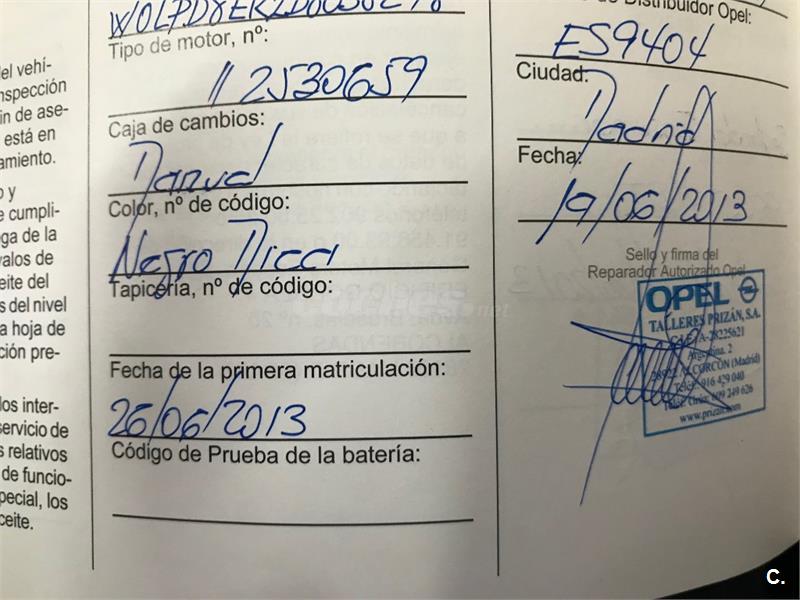 el vehí-
nspección
in de ase-
está en
amiento.
o y
e cumpli-
ga de la
valos de
eite del
s del nivel
a hoja de
ción pre-
los inter-
servicio de
s relativos
de funcio-
pecial, los
ceite.
Tipo de motor, nº:
112530659
Caja de cambios:
Manual
Color, nº de código:
Negro Mica
Tapicería, nº de código:
Fecha de la primera matriculación:
26/06/2013
Código de Prueba de la batería:
Distribuidor Opel:
ES9404
Ciudad:
Madrid
Fecha:
19/06/2013
Sello y firma del
Reparador Autorizado Opel
OPEL
TALLERES PRIZÁN, S.A.
A-28225621
Argentina, 2
ALCORCÓN (Madrid)
916 429 040
609 249 626
www.prizan.com
C.